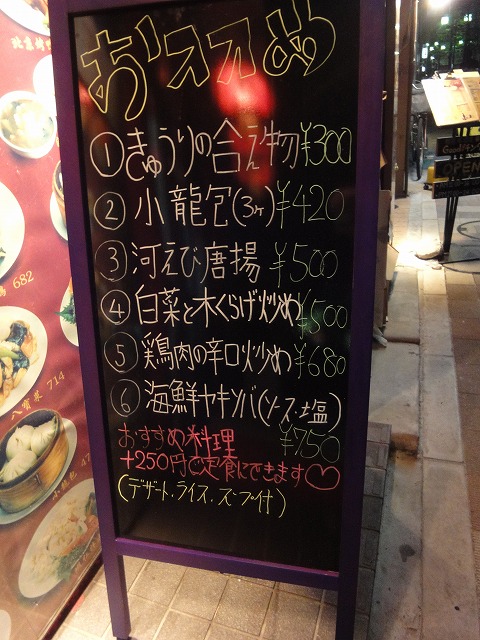 おススめ
①きゅうりの合え物¥300
②小龍包(3ヶ)¥420
③河えび唐揚¥500
④白菜と木くらげ炒め¥500
⑤鶏肉の辛口炒め¥680
⑥海鮮ヤキソバ(ソース・塩)
¥750
おすすめ料理
+250円で定食にできます♡
(デザート.ライス.スープ付)
682
714
OPEN